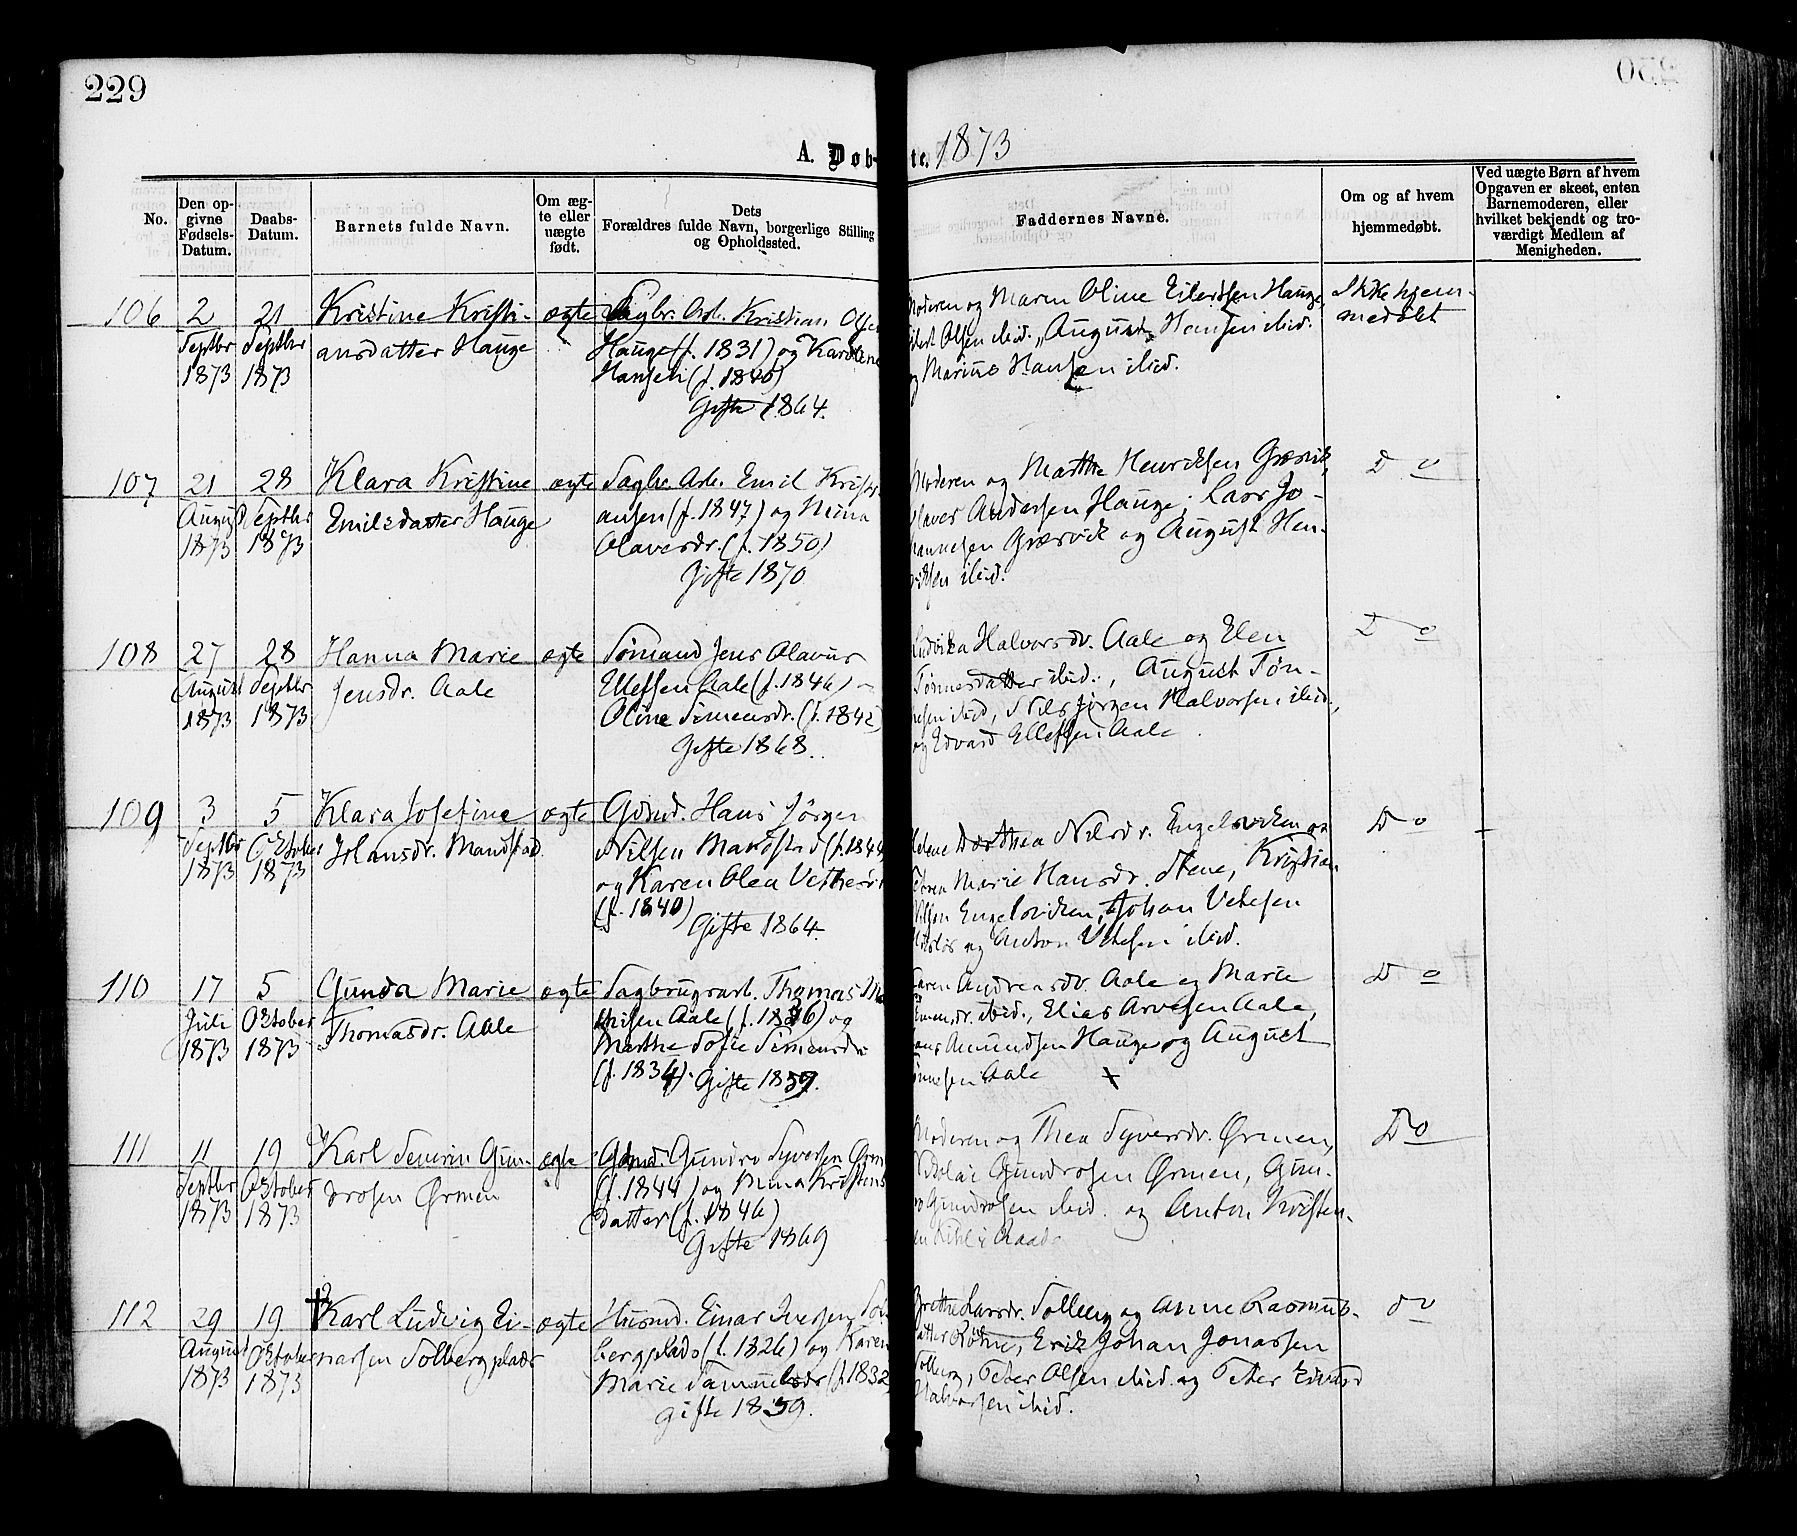 229
A. Døb- te. 1873
No.
Den op-
givne
Fødsels-
Datum.
Daabs-
Datum.
Barnets fulde Navn.
Om æg-
te eller
uægte
født.
Dets
Forældres fulde Navn, borgerlige Stilling
og Opholdssted.
Faddernes Navne.
Om og af hvem
hjemmedøbt.
Ved uægte Børn af hvem
Opgaven er skeet, enten
Barnemoderen, eller
hvilket bekjendt og tro-
værdigt Medlem af
Menigheden.
106
2
Septbr
1873
21
Septbr
1873
Kristine Kristi-
ansdatter Hauge
ægte
Sagbr. Arb. Kristian Olsen
Hauge (f. 1831) og Karoline
Hansen (f. 1840)
Gifte 1864.
Moderen og Maren Oline Eilertsen Hauge,
Olsen ibid., August Hansen ibid.
og Marius Hansen ibid.
Ikke hjem-
medøbt
107
21
August
1873
28
Septbr
1873
Klara Kristine
Emilsdatter Hauge
ægte
Sagbr. Arb. Emil Kristi
ansen (f. 1847) og Mina
Olaversdr. (f. 1850)
Gifte 1870
Moderen og Marthe Henriksen Græsvik,
Olaves Andersen Hauge, Lars Jo-
hannesen Græsvik og August Hen-
riksen ibid.
D o
108
27
August
1873
28
Septbr
1873
Hanna Marie
Jensdr. Aale
ægte
Sømand Jens Olavus
Ellefsen Aale (f. 1846) –
Oline Simensdr. (f. 1842)
Gifte 1868.
Ludvika Halvorsdr. Aale og Elen
Tønnesdatter ibid., August Tøn-
nesen ibid, Nils Jørgen Halvorsen ibid.,
og Edvard Ellefsen Aale
D o
109
3
Septbr
1873
5
Oktober
1873
Klara Josefine
Johansdr. Mandstad
ægte
Gdmd. Hans Jørgen
Nilsen Mandstad (f. 1844)
og Karen Olea
(f. 1840)
Gifte 1864.
Helene Dorthea Nilsdr. Engelsviken og
Marie Hansdr. Stene, Kristian
Nilsen Engelsviken, Johan Vetlesen
og Anton Vetlesen ibid.
D o
110
17
Juli
1873
5
Oktober
1873
Gunda Marie
Thomasdr. Aale
ægte
Sagbrugsarb. Thomas
Aale (f. 1836) og
Marthe Sofie Simensdr.
(f. 1834). Gifte 1859.
Karen Andreasdr. Aale og Marie
Simensdr. ibid., Elias Arvesen Aale,
Hans Amundsen Hauge og August
Tønnesen Aale
D o
111
11
Septbr
1873
19
Oktober
1873
Karl Severin Gun-
drosen Ørmen
ægte
Gdmd. Gundro Syversen Ørm
(f. 1844) og Mina Kristens
datter (f. 1846)
Gifte 1869
Moderen og Thea Syversdr. Ørmen,
Nikolai Gundrosen Ørmen, Gun-
ro Gundrosen ibid. og Anton Kristen-
D o
112
29
August
1873
19
Oktober
1873
Karl Ludvig Ei-
narsen Solbergplads
ægte
Husmd. Einar Iversen Sol
bergplads (f. 1826) og Karen
Marie Samuelsdr (f. 1832)
Gifte 1859.
Grethe Larsdr. Solberg og Anne Rasmus-
datter Rødne, Erik Johan Jonassen
Solberg, Peter Olsen ibid. og Peter Edvard
Halvorsen ibid.
do